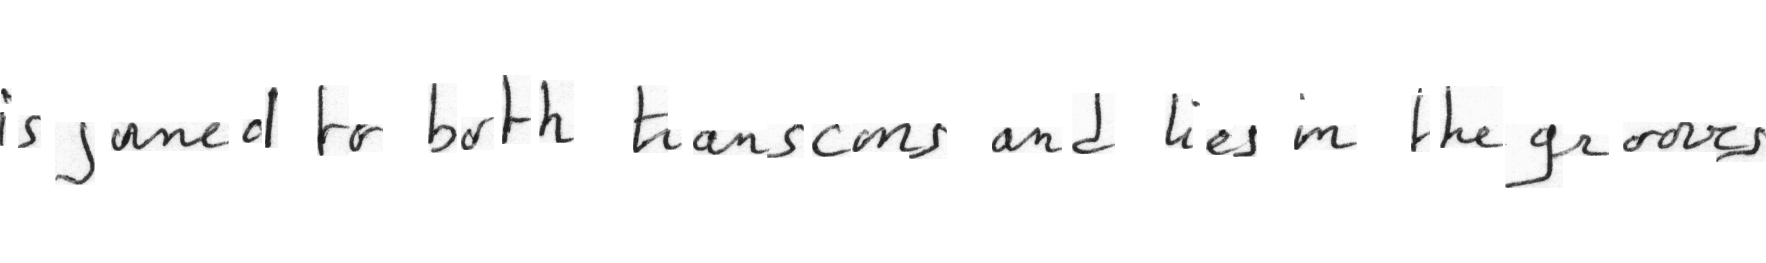 is joined to both transcons and lies in the grooves